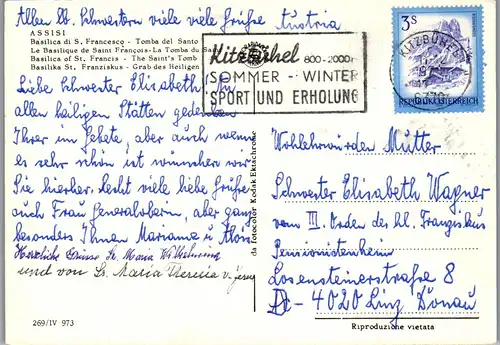 Allen lb. Schwestern viele viele Grüße Austria
ASSISI
Basilica di S. Francesco - Tomba del Santo
Le Basilique de Saint François - La Tombe du Sa
Basilica of St. Francis - The Saint's Tomb
Basilika St. Franziskus - Grab des Heiligen
Liebe Schwester Elisabeth! An
allen heiligen Stätten gedenken
Ihrer im Gebete, aber auch wenn
es sehr schön ist wünschen wir
Sie hierher. Recht viele liebe Grüße
auch Frau Generaloberin, aber ganz
besonders Ihnen Marianne u. Alois
Herzliche Grüsse Sr. Maria
und von Sr. Maria Theresia v. Jesu
269/IV 973
da fotocolor Kodak Ektachrome
Kitzbühel 800-2000m
SOMMER - WINTER
SPORT UND ERHOLUNG
3S
KITZBÜHEL
REPUBLIK ÖSTERREICH
Wohlehrwürden Mutter
Schwester Elisabeth Wagner
vom III. Orden des hl. Franziskus
Pensionistenheim
Losensteinerstraße 8
A - 4020 Linz Donau
Riproduzione vietata